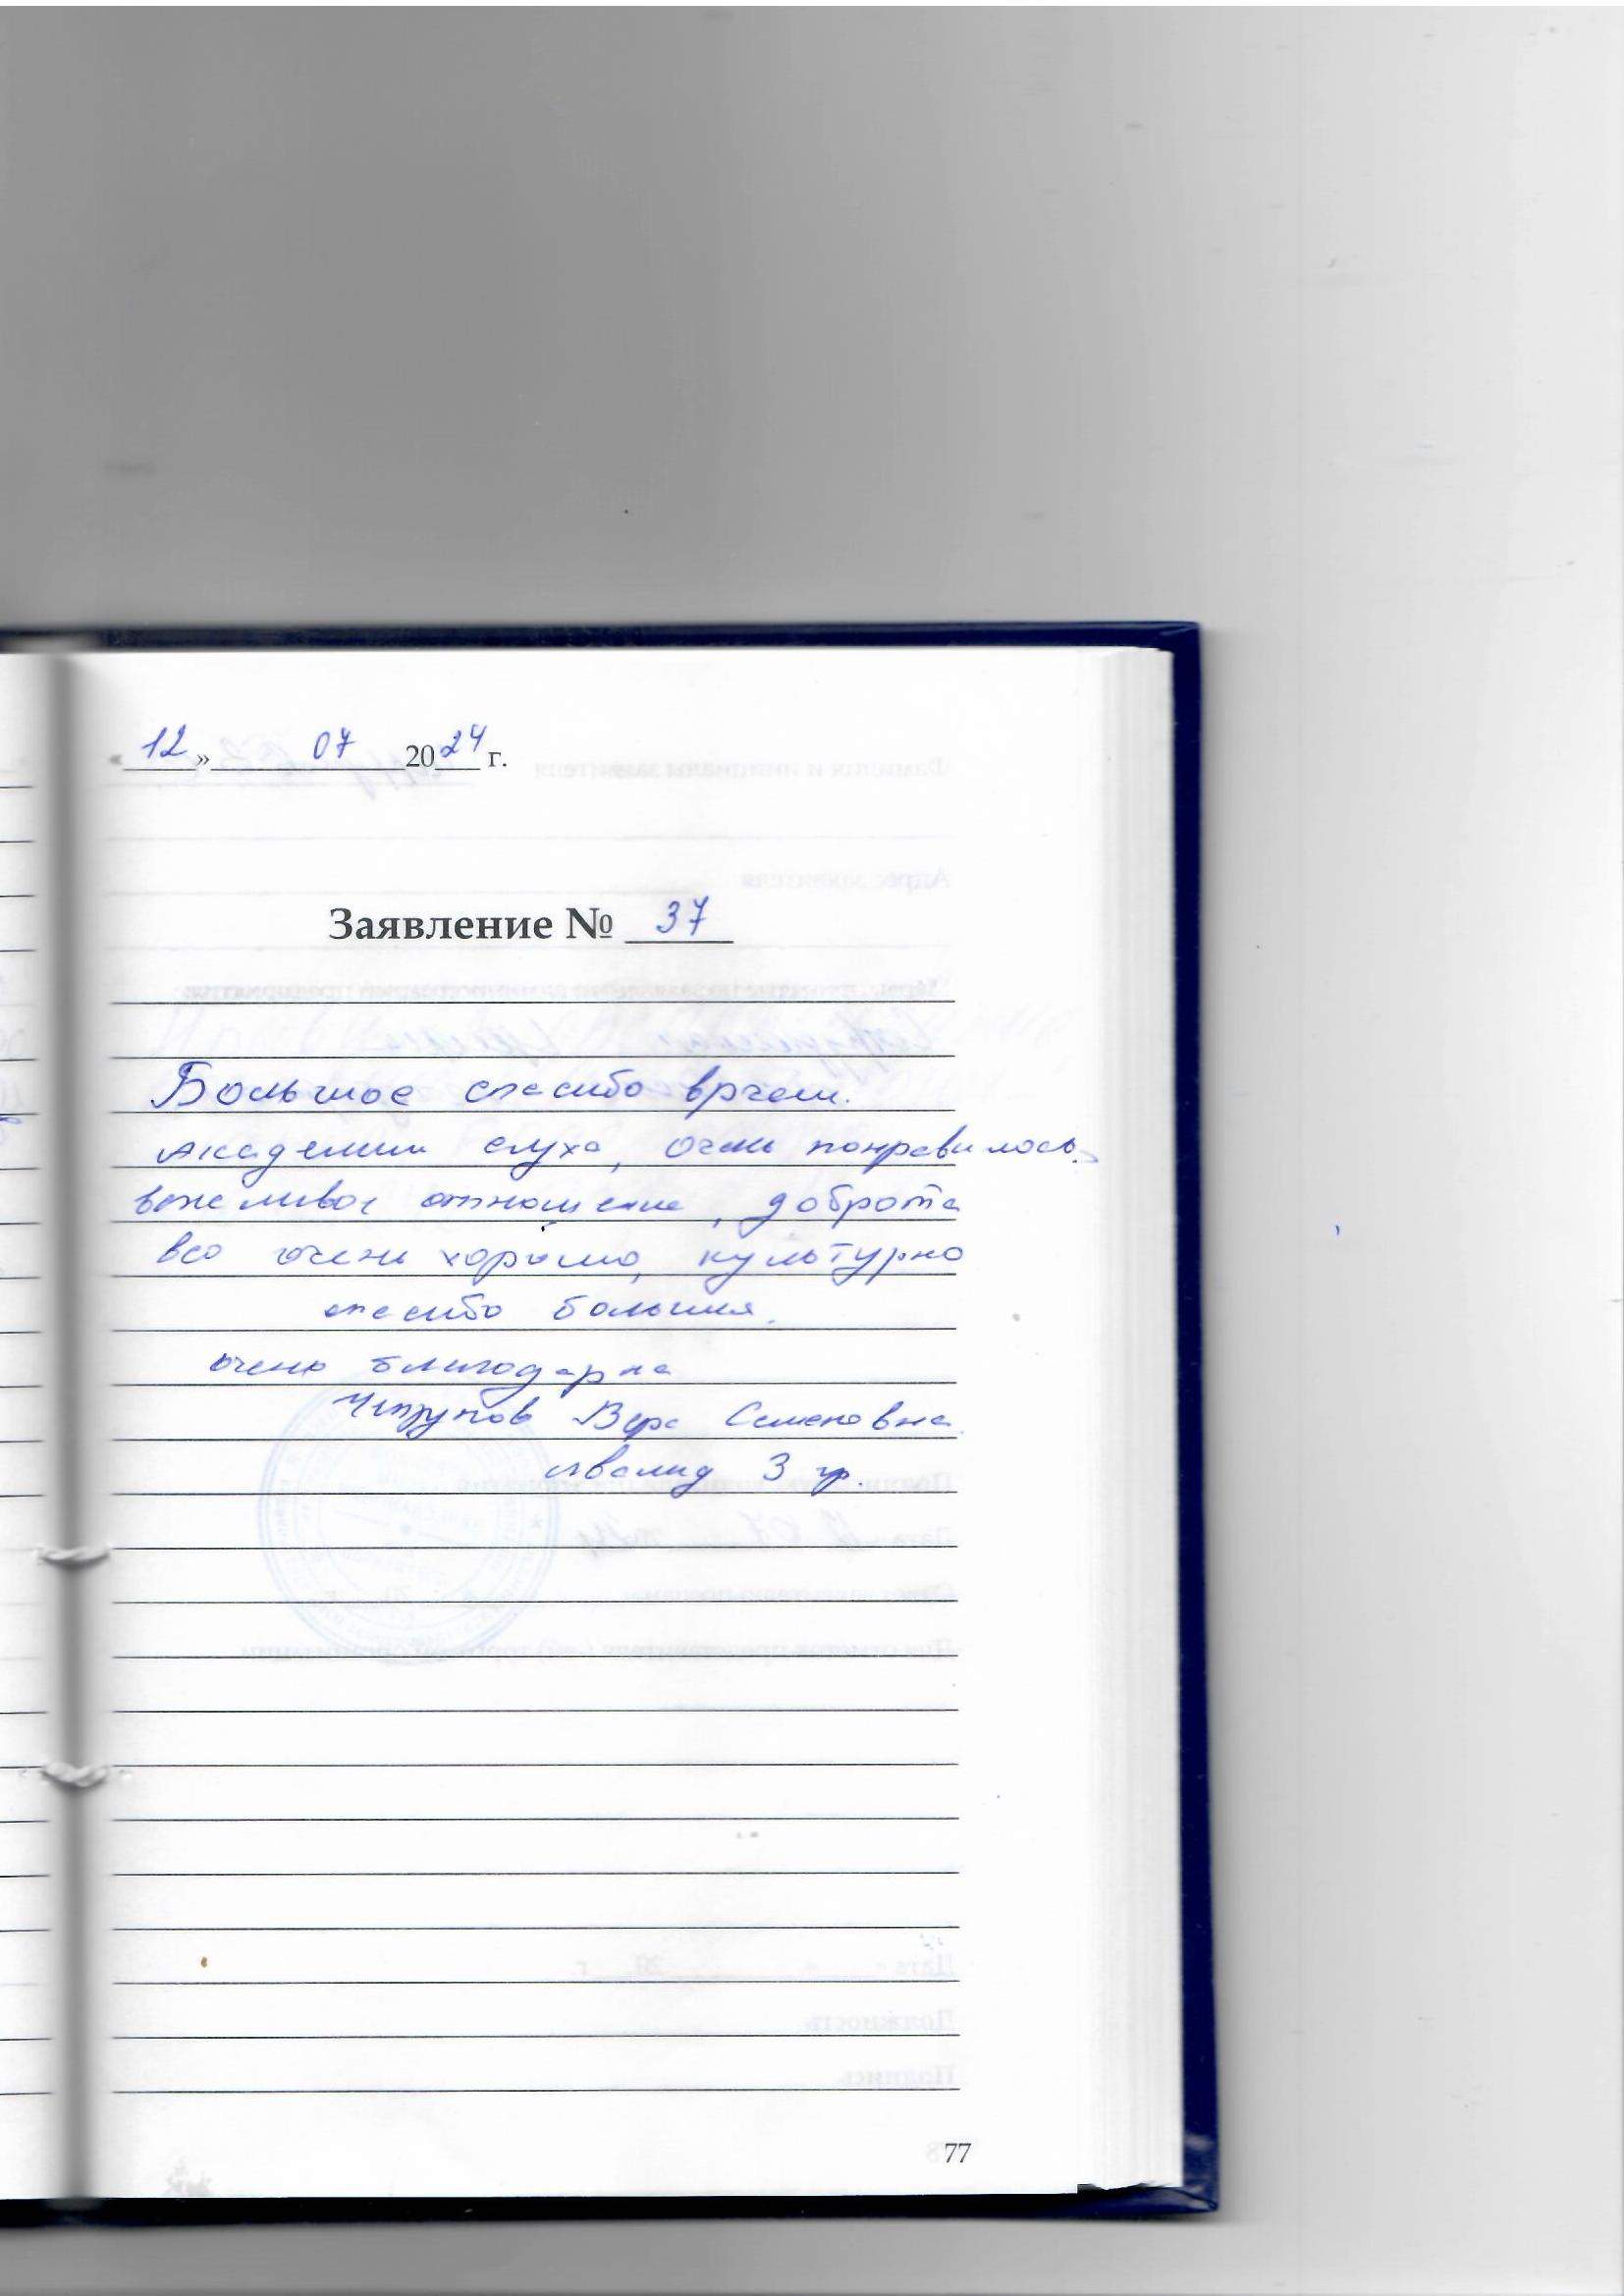 « 12 » 07 2024 г.
Заявление № 37
Большое спасибо врачам.
Академии слуха, очень понравилось
вежливое отношение, доброта
все очень хорошо, культурно
спасибо большия.
очень благодарна
Вера Семеновна
инвалид 3 гр.
77